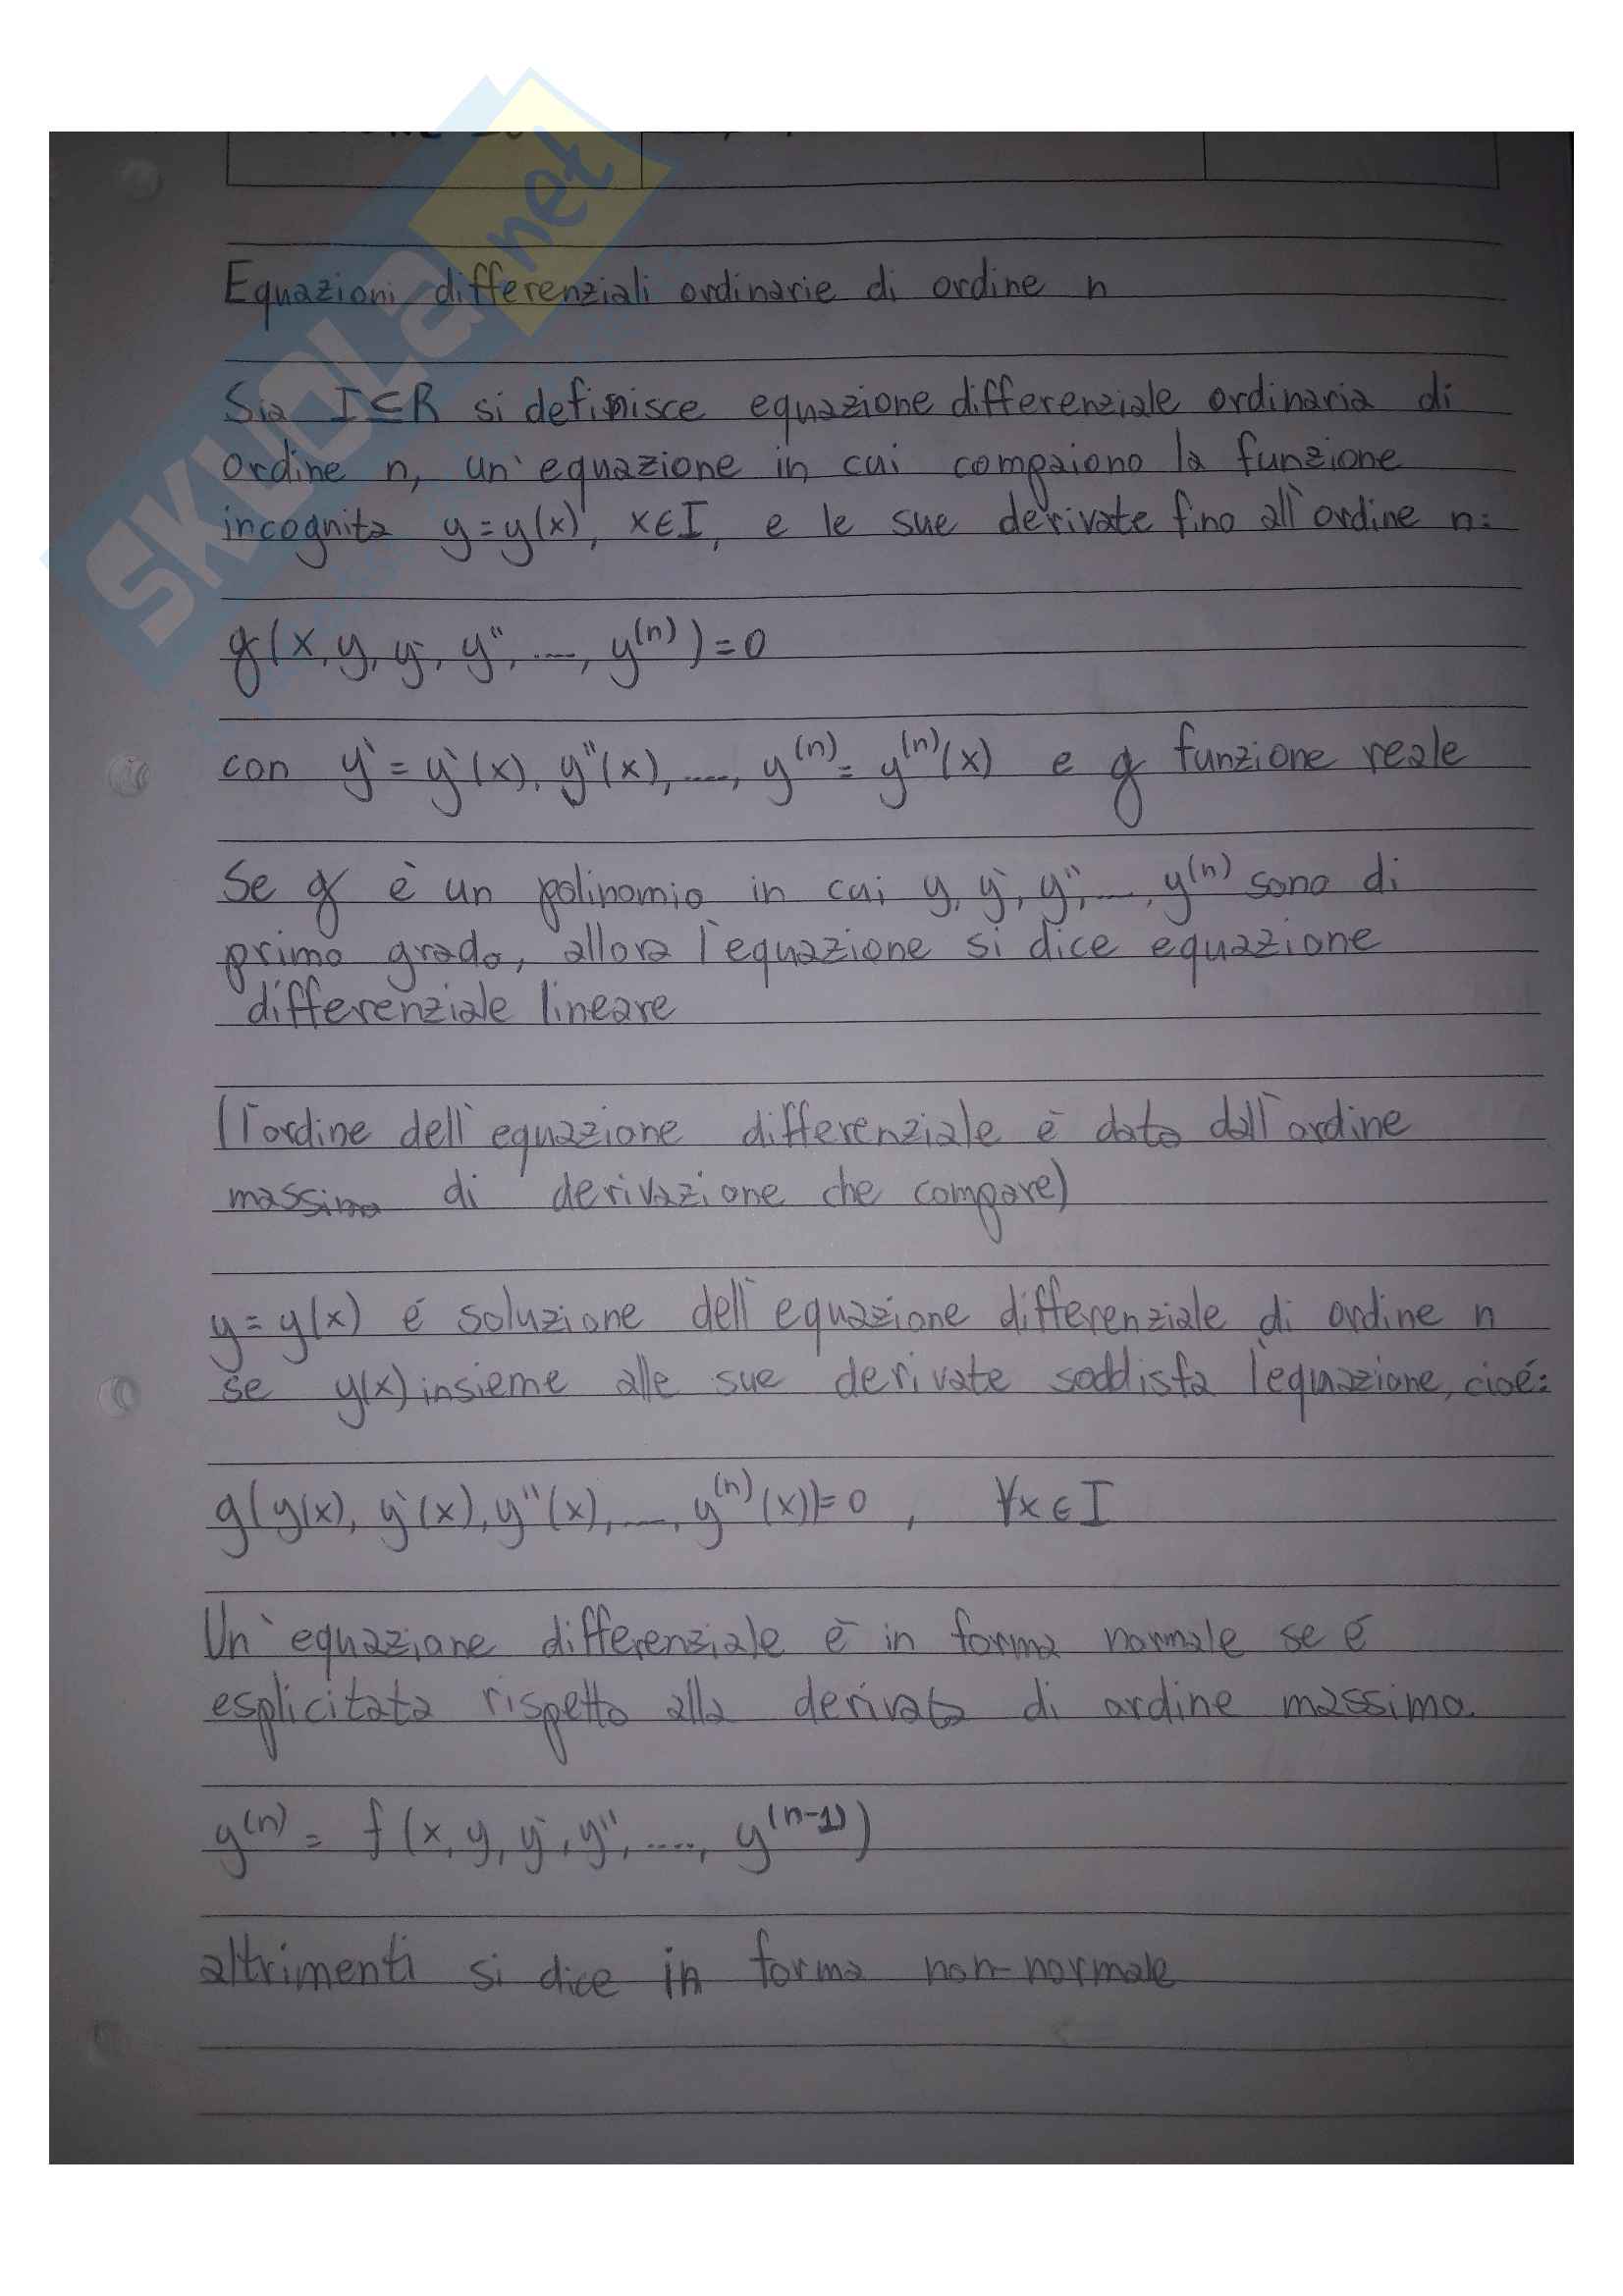 SKUOLA.net
Equazioni differenziali ordinarie di ordine n
Sia I⊂R si definisce equazione differenziale ordinaria di
ordine n, un'equazione in cui compaiono la funzione
incognita y=y(x), x∈I, e le sue derivate fino all'ordine n:
g(x, y, y', y'', ...., y⁽ⁿ⁾)=0
con y'=y'(x), y''(x), ...., y⁽ⁿ⁾=y⁽ⁿ⁾(x) e g funzione reale
Se g è un polinomio in cui y, y', y'', ..., y⁽ⁿ⁾ sono di
primo grado, allora l'equazione si dice equazione
differenziale lineare
(l'ordine dell'equazione differenziale è dato dall'ordine
massimo di derivazione che compare)
y=y(x) é soluzione dell'equazione differenziale di ordine n
se y(x) insieme alle sue derivate soddisfa l'equazione, cioé:
g(y(x), y'(x), y''(x), ...., y⁽ⁿ⁾(x))=0 , ∀x∈I
Un'equazione differenziale è in forma normale se é
esplicitata rispetto alla derivata di ordine massimo.
y⁽ⁿ⁾ = f(x, y, y', y'', ...., y⁽ⁿ⁻¹⁾)
altrimenti si dice in forma non-normale